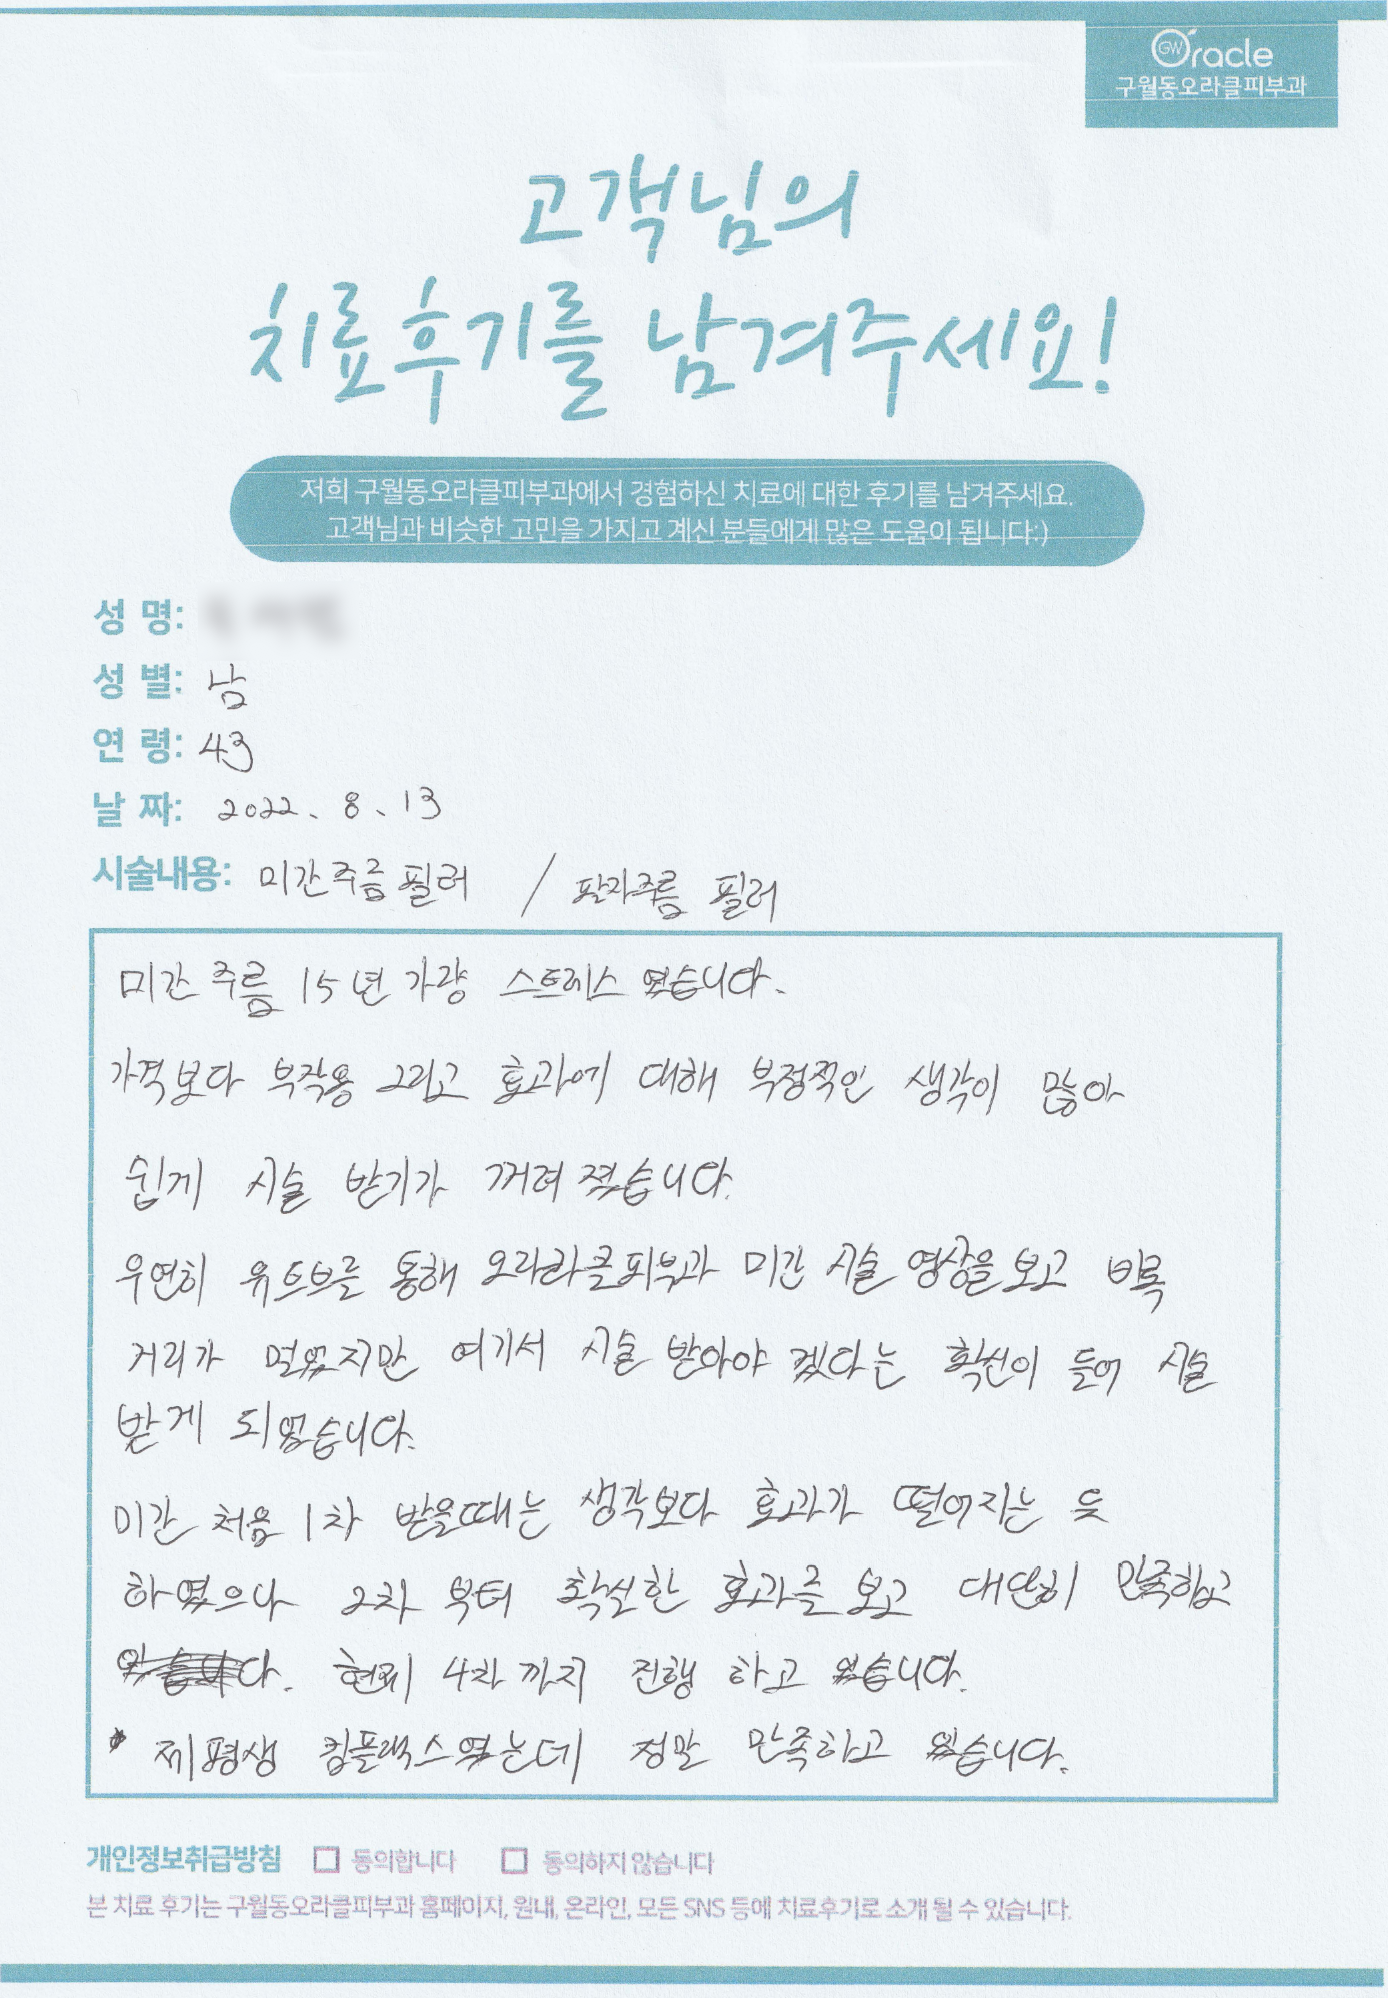 GW Oracle
구월동오라클피부과
고객님의
치료후기를 남겨주세요!
저희 구월동오라클피부과에서 경험하신 치료에 대한 후기를 남겨주세요.
고객님과 비슷한 고민을 가지고 계신 분들에게 많은 도움이 됩니다:)
성 명:
성 별: 남
연 령: 43
날 짜: 2022. 8. 13
시술내용: 미간주름 필러 / 팔자주름 필러
미간 주름 15년 가량 스트레스 였습니다.
가격보다 부작용 그리고 효과에 대해 부정적인 생각이 많아
쉽게 시술 받기가 꺼려 젔습니다.
우연히 유트브를 통해 오라클피부과 미간 시술 영상을 보고 비록
거리가 멀었지만 여기서 시술 받아야 겠다는 확신이 들어 시술
받게 되었습니다.
미간 처음 1차 받을때는 생각보다 효과가 떨어지는 듯
하였으나 2차 부터 확실한 효과를 보고 대단히 만족하고
있습니다. 현재 4차 까지 진행 하고 있습니다.
제평생 컴플렉스였는데 정말 만족하고 있습니다.
개인정보취급방침 □ 동의합니다 □ 동의하지 않습니다
본 치료 후기는 구월동오라클피부과 홈페이지, 원내, 온라인, 모든 SNS 등에 치료후기로 소개 될 수 있습니다.